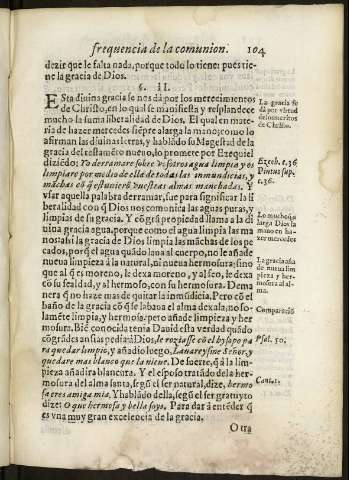 frequencia de la comunion. 104
dezir que le falta nada, porque todo lo tiene: pues tie-
ne la gracia de Dios.
§. II.
Esta diuina gracia se nos dà por los merecimientos
de Christo, en lo qual se manifiesta y resplandece
mucho la suma liberalidad de Dios. El qual en mate-
ria de hazer mercedes siẽpre alarga la mano; como lo
afirman las diuinas letras, y hablãdo su Magestad de la
gracia del testamẽto nueuo, lo promete por Ezequiel
diziẽdo: Yo derramare sobre vosotros agua limpia y os
limpiare por medio de ella de todas las inmundicias, y
mãchas cõ q̃ estuuierẽ vuestras almas manchadas. Y
vsar aquella palabra derramar, fue para significar la li
beralidad con q̃ Dios nos comunica las aguas puras, y
limpias de su gracia. Y cõ grã propiedad llama a la di
uina gracia agua, porque como el agua limpia las ma
nos assi la gracia de Dios limpia las mãchas de los pe
cados, porq̃ el agua quãdo laua al cuerpo, no le añade
nueua limpieza à la natural, ni nueua hermosura; sino
que al q̃ es moreno, le dexa moreno, y al feo, le dexa
cõ su fealdad, y al hermoso, con su hermosura. De ma
nera q̃ no haze mas de quitar la inmũdicia. Pero cõ el
baño de la gracia cõ q̃ se labaua el alma dexala, no so-
lamẽte limpia, y hermosa, pero añade limpieza y her
mosura. Biẽ conocida tenia Dauid esta verdad quãdo
cõ grãdes ansias pedia à Dios, le roziasse cõ el hysopo pa
ra quedar limpio, y añadio luego, Lauareysme Señor, y
quedare mas blanco que la nieue. De suerte, q̃ à la lim
pieza añadira blancura. Y el esposo tratãdo de la her
mosura del alma santa, segũ el ser natural, dize, hermo
sa eres amiga mia, Y hablãdo della, segũ el ser gratuyto
dize: O que hermosa y bella soys. Para dar à entẽder q̃
es vna muy gran excelencia de la gracia.
Otra
La gracia se
dà por virtud
de los meritos
de Christo.
Ezech. c. 36
Pintus sup.
c. 36.
Lo mucho q̃
alarga Dios la
mano en ha-
zer mercedes
La gracia añ
de nueua lim
pieza y her-
mosura al al-
ma.
Comparaciõ
Psal. 50.
Cant. 1.